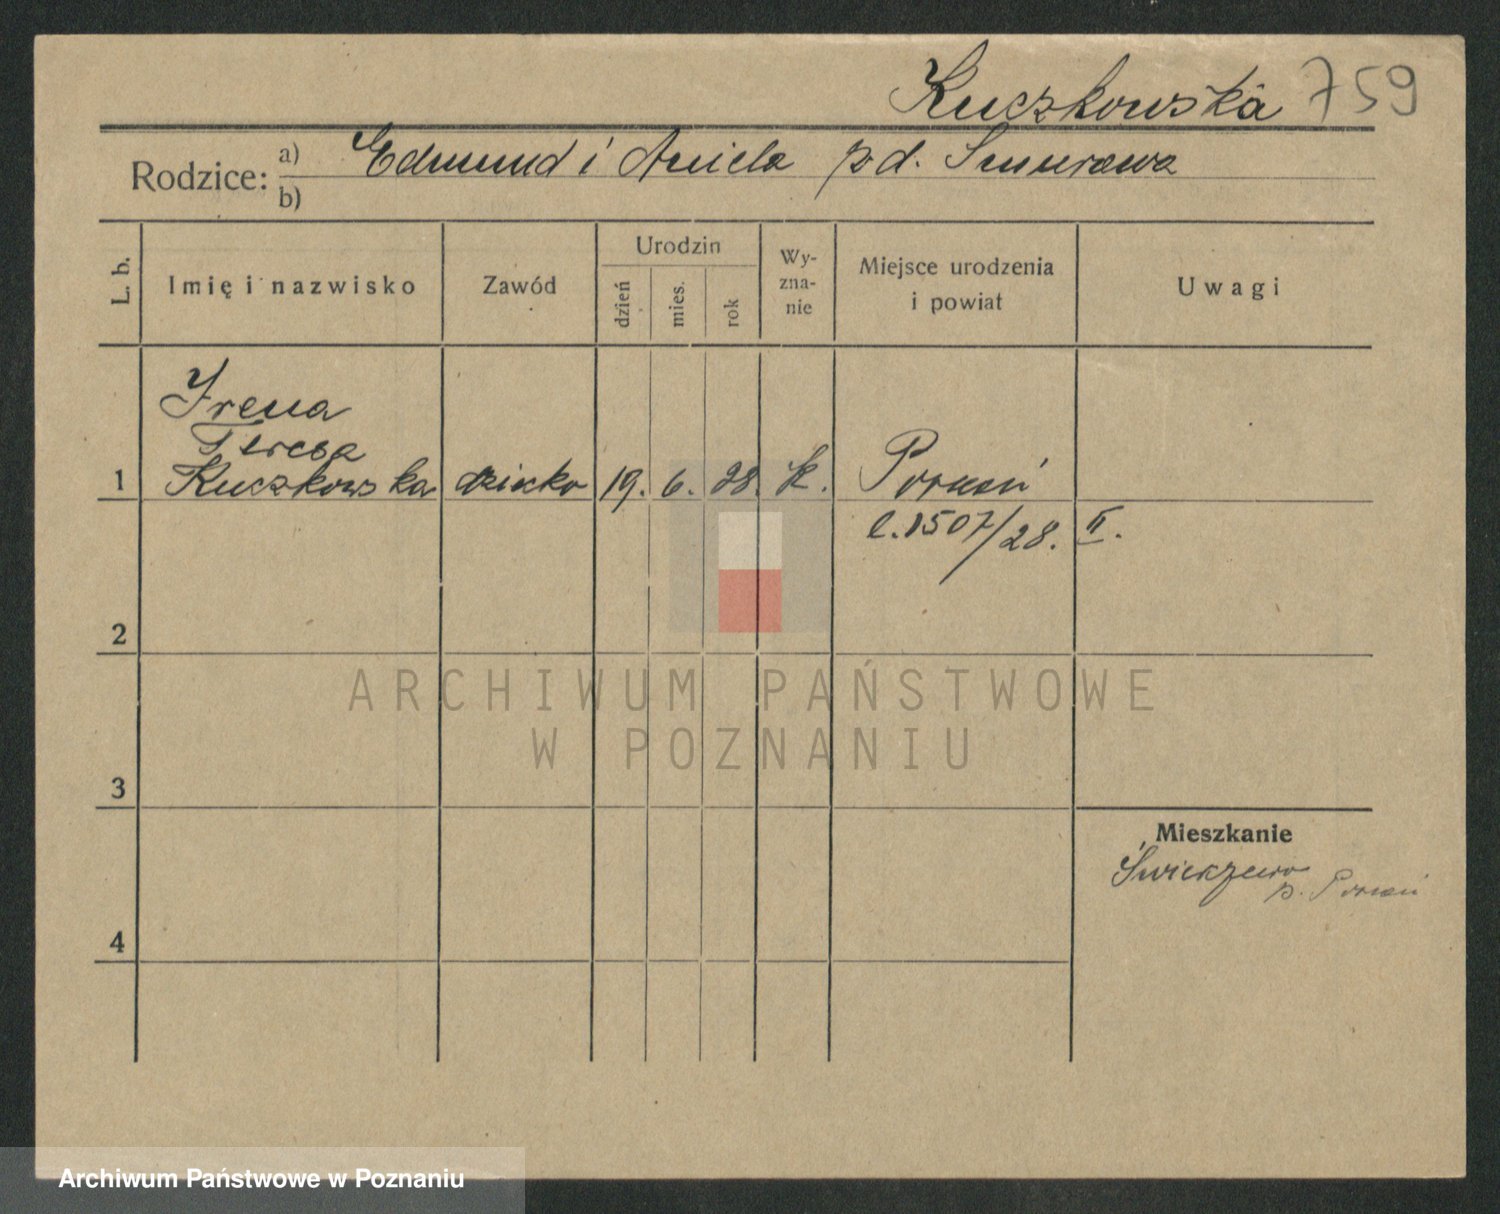 Kuczkowska 759
Rodzice: a) Edmund i Aniela p d.
b)
L. b.
Imię i nazwisko
Zawód
Urodzin
dzień
mies.
rok
Wy-
zna-
nie
Miejsce urodzenia
i powiat
Uwagi
Irena
Teresa
1 Kuczkowska dziecko 19. 6. 28. k. Poznań
l. 1507/28. II.
2
3
4
Mieszkanie
p. Poznań
ARCHIWUM PAŃSTWOWE
W POZNANIU
Archiwum Państwowe w Poznaniu